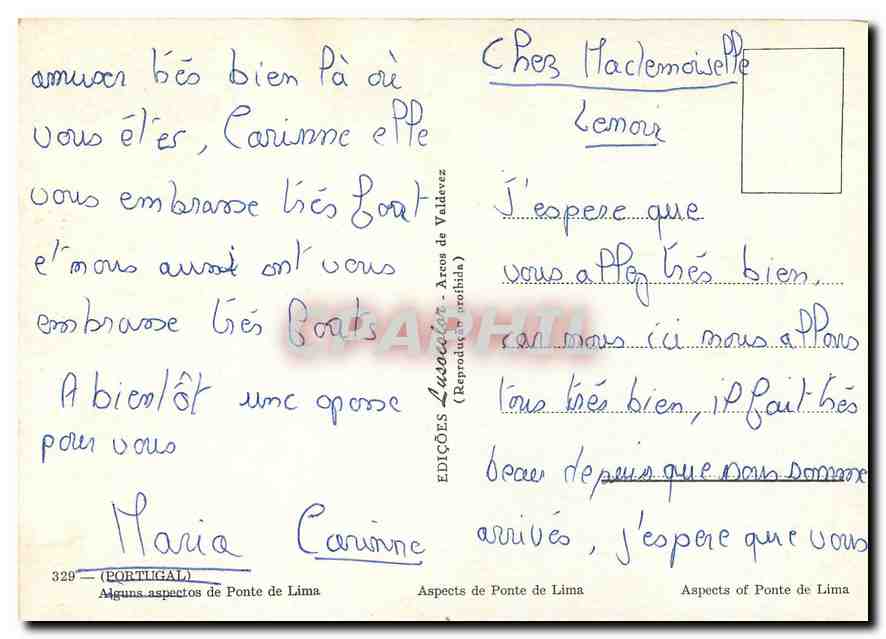 Chez Mademoiselle
Lenoir
J'espere que
vous allez trés bien,
car nous ici nous allons
tous trés bien, il fait trés
beau depuis que nous somme
arrivés, j'espere que vous
amuser trés bien là où
vous étes, Carinne elle
vous embrasse trés fort
et nous aussi ont vous
embrasse trés forts
A bientôt une
pour vous
Maria Carinne
EDIÇÕES Lusocolor - Arcos de Valdevez
(Reprodução proibida)
CPAPHIL
329 — (PORTUGAL)
Alguns aspectos de Ponte de Lima
Aspects de Ponte de Lima
Aspects of Ponte de Lima